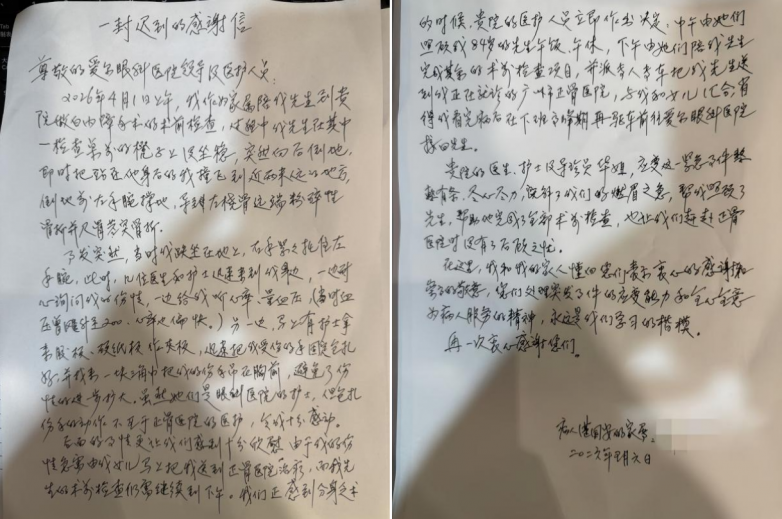 一封迟到的感谢信
尊敬的爱尔眼科医院领导及医护人员:
2026年4月1日上午,我作为家属陪我先生到贵
院做白内障手术的术前检查,过程中我先生在其中
一检查室前的椅子上没坐稳,突然向后倒地,
即时把站在他身后的我撞飞到近两米远的地方,
倒地前左手腕撑地,导致左桡骨远端粉碎性
骨折并尺骨茎突骨折。
事发突然,当时我跌坐在地上,右手紧托住左
手腕,此时,几位医生和护士迅速来到我身边,一边耐
心询问我的伤情,一边给我听心率、量血压(当时血
压曾飚升至200,心率也偏快。)另一边,马上有护士拿
来胶板、硬纸板作夹板,迅速把我受伤的手固定包扎
好,并找来一块三角巾把我的伤手吊在胸前,避免了伤
情的进一步扩大。虽然她们是眼科医院的护士,但包扎
伤手的动作不亚于正骨医院的医护,令我十分感动。
后面的事情更让我们感到十分欣慰,由于我的伤
情急需由我女儿马上把我送到正骨医院治疗,而我先
生的术前检查仍需继续到下午。我们正感到分身乏术
的时候,贵院的医护人员立即作出决定,中午由她们
照顾我84岁的先生午饭、午休,下午由她们陪我先生
完成其余的术前检查项目,并派专人专车把我先生送
到我正在就诊的广州市正骨医院,与我和女儿汇合,省
得我看完病后在下班高峰期再驱车前往爱尔眼科医院
接回先生。
贵院的医生、护士及导诊员华姐,应变这一紧急事件整
然有条,尽心尽力,解了我们的燃眉之急,帮我照顾了
先生,帮助他完成了全部术前检查,也让我们赶赴正骨
医院时没有了后顾之忧。
在这里,我和我的家人懂向您们表示衷心的感谢和
崇高的敬意,您们处理突发事件的应变能力和全心全意
为病人服务的精神,永远是我们学习的楷模。
再一次衷心感谢您们。
病人 家属
二〇二六年四月六日